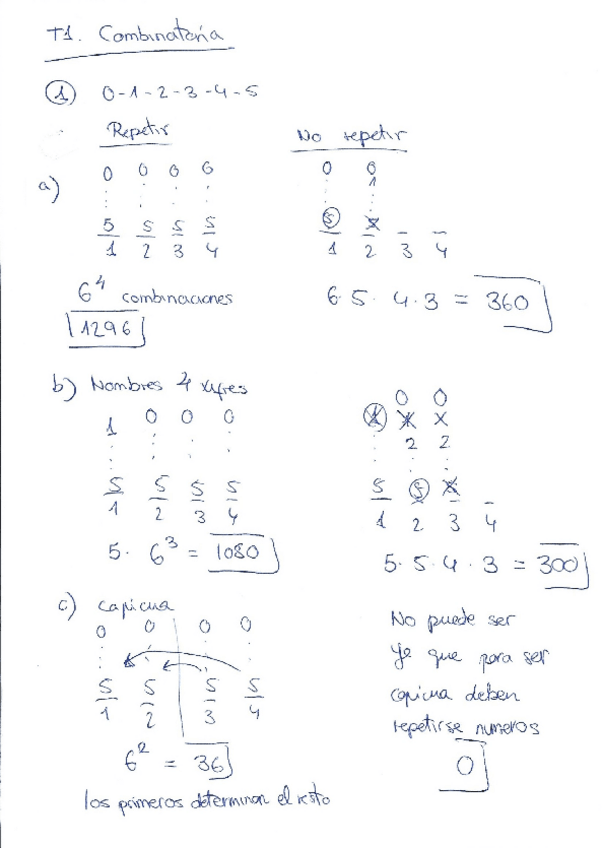 T1. Combinatoria
① 0-1-2-3-4-5
Repetir
No repetir
a)
0 0 0 0
5 5 5 5
1 2 3 4
6⁴ combinaciones
1296
0 0
1
5 5 _ _
1 2 3 4
6·5·4·3 = 360
b) Nombres 4 xifres
1 0 0 0
5 5 5 5
1 2 3 4
5·6³ = 1080
0 0
1 x x
2 2
5 5 x _
1 2 3 4
5·5·4·3 = 300
c) capicua
0 0 0 0
5 5 5 5
1 2 3 4
6² = 36
los primeros determinan el resto
No puede ser
ya que para ser
capicua deben
repetirse numeros
0